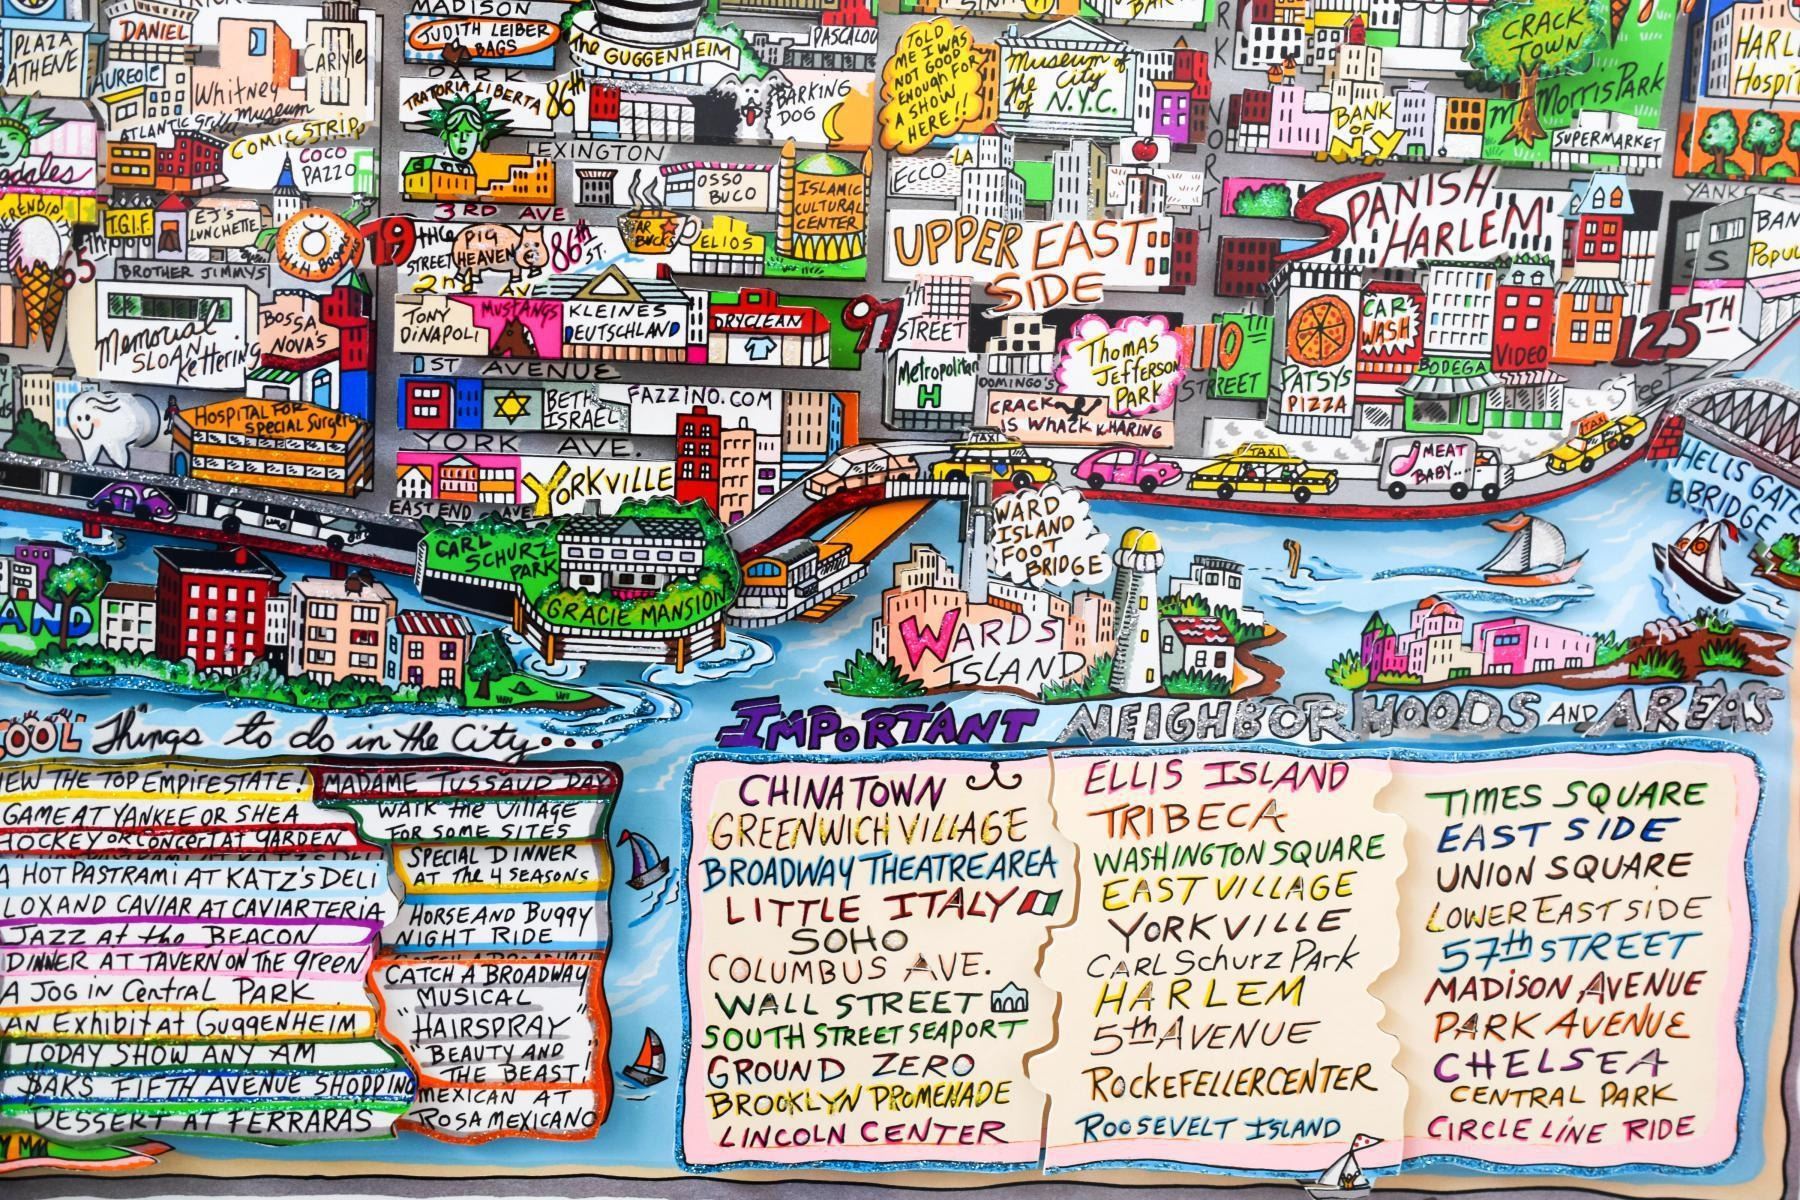 MADISON
PLAZA
ATHENE
DANIEL
AUREOLE
Whitney
Museum
Carlyle
ATLANTIC Grill
COMIC STRIP
COCO
PAZZO
JUDITH LEIBER
BAGS
The GUGGENHEIM
PARK
TRATORIA LIBERTA
86th
BARKING
DOG
LEXINGTON
OSSO
BUCO
ISLAMIC
CULTURAL
CENTER
TOLD
ME I WAS
NOT GOOD
ENOUGH FOR
A SHOW
HERE!!
Museum of
the City
of N.Y.C.
ECCO
LA
BANK
OF
NY
CRACK
TOWN
MT Morris PARK
SUPERMARKET
HARL
Hospit
YANKEE
BAN
POPU
T.G.I.F
EJ's
LUNCHETTE
H&H Bagels
65th
BROTHER JIMMYS
79
3RD AVE
the
STREET
PIG
HEAVEN
86th
ST.
TAR
BUCKS
ELIOS
2nd AV
UPPER EAST
SIDE
SPANISH
HARLEM
Memorial
SLOAN
Kettering
BOSSA
NOVA'S
TONY
DiNAPOLI
MUSTANGS
KLEINES
DEUTSCHLAND
DRYCLEAN
97
th
STREET
1ST AVENUE
Metropolitan
H
DOMINGO'S
Thomas
Jefferson
Park
110th
STREET
PATSYS
PIZZA
CAR
WASH
BODEGA
VIDEO
125TH
HOSPITAL FOR
Special Surgery
BETH
ISRAEL
FAZZINO.COM
CRACK
IS WHACK K.HARING
YORK AVE.
YORKVILLE
EAST END AVE
TAXI
TAXI
MEAT
BABY....
TAXI
HELLS GATE
B.BRIDGE
CARL
SCHURZ
PARK
GRACIE MANSION
WARD
ISLAND
FOOT
BRIDGE
WARDS
ISLAND
AND
COOL Things to do in the City...
IMPORTANT NEIGHBORHOODS AND AREAS
IEW THE TOP EMPIRESTATE!
GAME AT YANKEE OR SHEA
HOCKEY or Concert at GARDEN
A HOT PASTRAMI AT KATZ'S DELI
LOX AND CAVIAR AT CAVIARTERIA
JAZZ At the BEACON
DINNER AT TAVERN ON THE green
A JOG in Central PARK
AN Exhibit at GUGGENHEIM
TODAY SHOW ANY AM
SAKS FIFTH AVENUE SHOPPING
DESSERT AT FERRARAS
MADAME TUSSAUD DAY
WALK the VILLAGE
FOR SOME SITES
SPECIAL DINNER
AT the 4 SEASONS
HORSE AND BUGGY
NIGHT RIDE
CATCH A BROADWAY
MUSICAL
"HAIRSPRAY"
"BEAUTY AND
THE BEAST!
MEXICAN AT
ROSA MEXICANO
CHINATOWN
GREENWICH VILLAGE
BROADWAY THEATRE AREA
LITTLE ITALY
SOHO
COLUMBUS AVE.
WALL STREET
SOUTH STREET SEAPORT
GROUND ZERO
BROOKLYN PROMENADE
LINCOLN CENTER
ELLIS ISLAND
TRIBECA
WASHINGTON SQUARE
EAST VILLAGE
YORKVILLE
CARL Schurz Park
HARLEM
5th AVENUE
ROCKEFELLER CENTER
ROOSEVELT ISLAND
TIMES SQUARE
EAST SIDE
UNION SQUARE
LOWER EAST SIDE
57th STREET
MADISON AVENUE
PARK AVENUE
CHELSEA
CENTRAL PARK
CIRCLE LINE RIDE